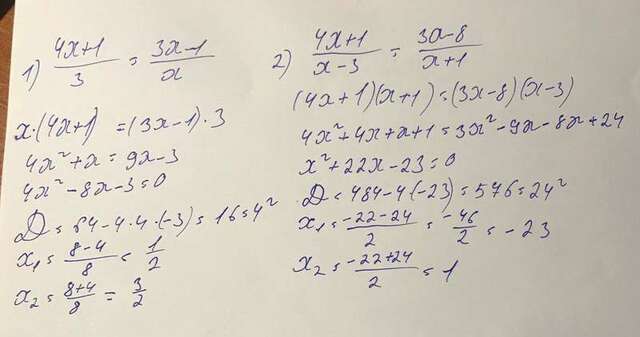 1) (4x+1)/3 = (3x-1)/x
x·(4x+1) = (3x-1)·3
4x²+x = 9x-3
4x²-8x-3=0
D = 64-4·4·(-3) = 16=4²
x₁ = (8-4)/8 = 1/2
x₂ = (8+4)/8 = 3/2
2) (4x+1)/(x-3) = (3x-8)/(x+1)
(4x+1)(x+1)=(3x-8)(x-3)
4x²+4x+x+1=3x²-9x-8x+24
x²+22x-23=0
D=484-4·(-23)=576=24²
x₁ = (-22-24)/2 = -46/2 = -23
x₂ = (-22+24)/2 = 1